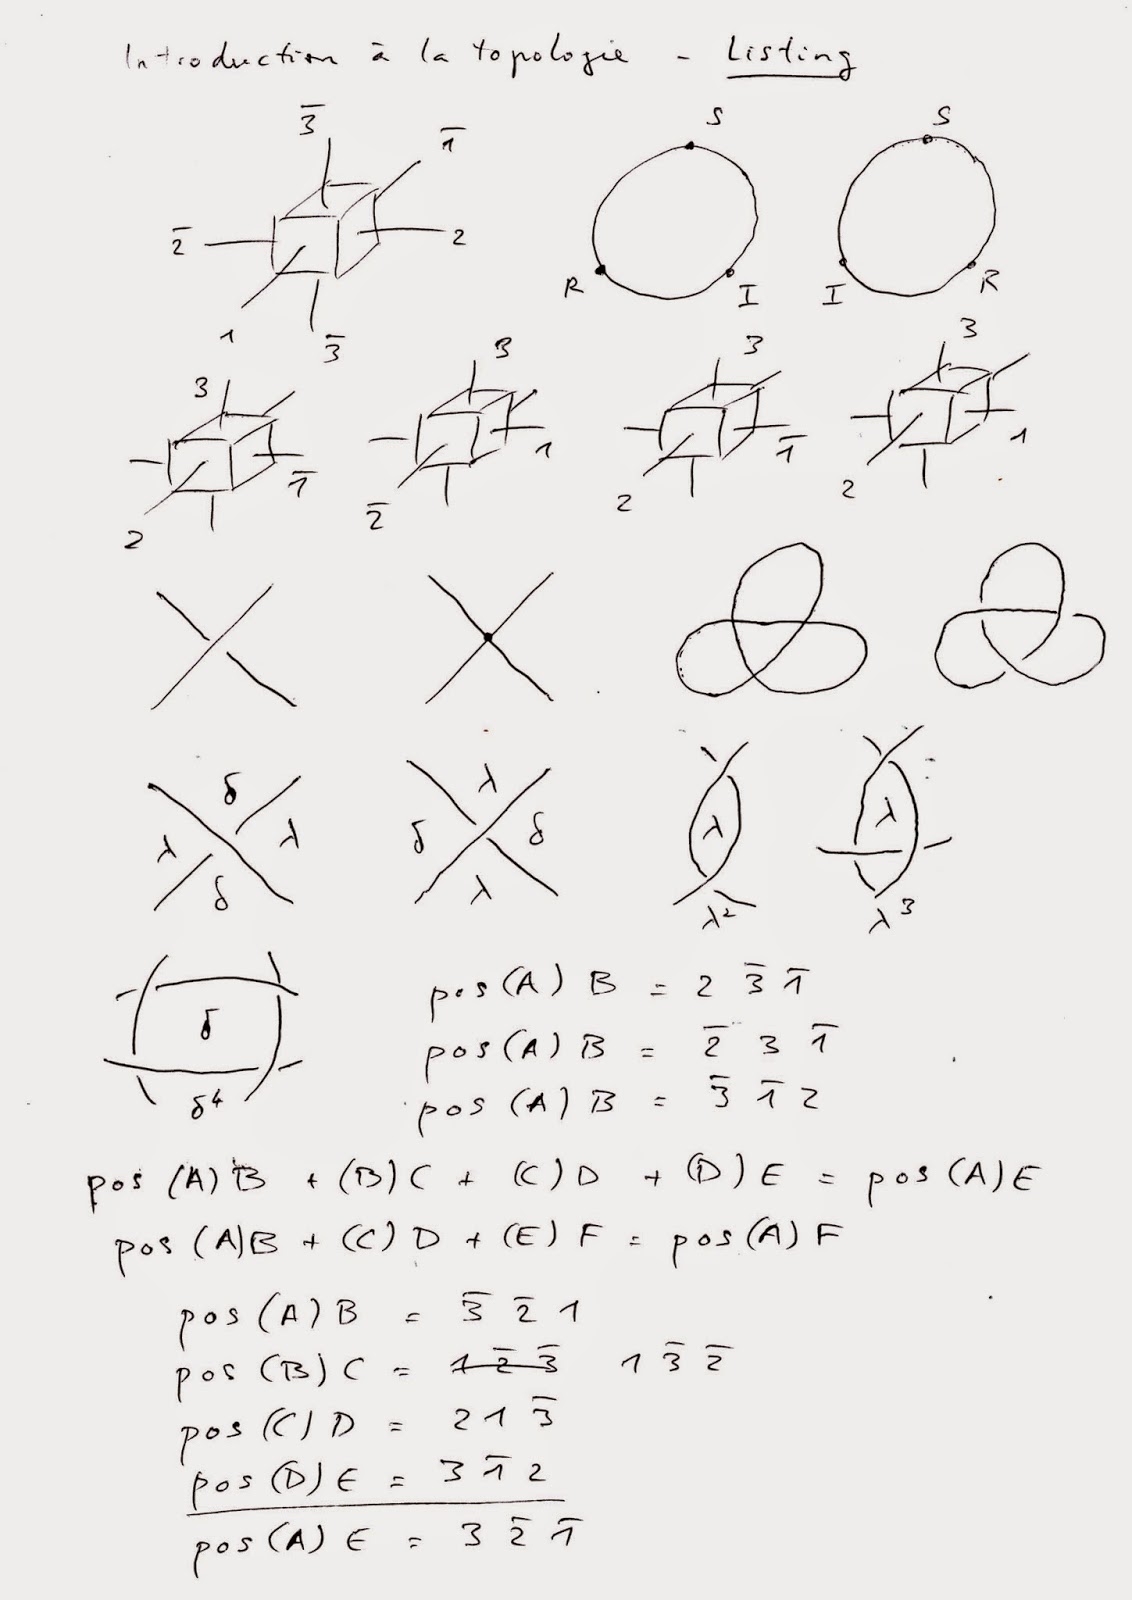 Introduction à la topologie - Listing
3̅ 1̅ S S
2̅ 2
R I I R
1 3̅
3 3 3 3
1̅ 1 1̅ 1
2 2̅ 2 2
δ λ
λ λ δ δ λ λ
δ λ λ² λ³
δ
δ⁴
pos(A) B = 2 3̅ 1̅
pos(A) B = 2̅ 3 1̅
pos (A) B = 3̅ 1̅ 2
pos (A) B + (B) C + (C) D + (D) E = pos (A) E
pos (A) B + (C) D + (E) F = pos (A) F
pos (A) B = 3̅ 2̅ 1
pos (B) C = 1 2̅ 3̅ 1 3̅ 2̅
pos (C) D = 2 1 3̅
pos (D) E = 3 1̅ 2
pos (A) E = 3 2̅ 1̅